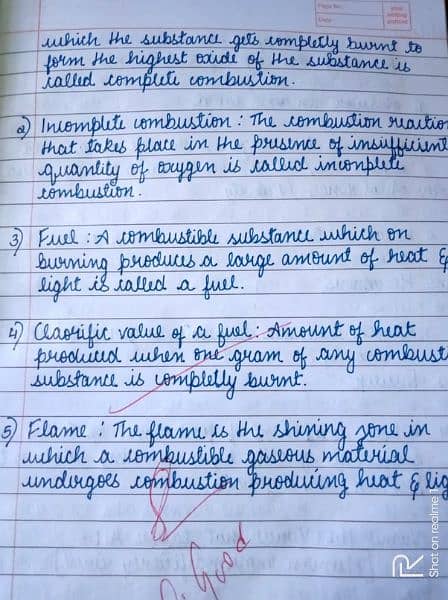 Page No.
Date
which the substance gets completly burnt to
form the highest oxide of the substance is
called complete combustion.
2) Incomplete combustion : The combustion reaction
that takes place in the presence of insufficient
quantity of oxygen is called inconplete
combustion.
3) Fuel : A combustible substance which on
burning produces a large amount of heat &
light is called a fuel.
4) Claorific value of a fuel : Amount of heat
produced when one gram of any combusti
substance is completly burnt.
5) Flame : The flame is the shining zone in
which a combustible gaseous material
undergoes combustion producing heat & lig
Good
Shot on realme